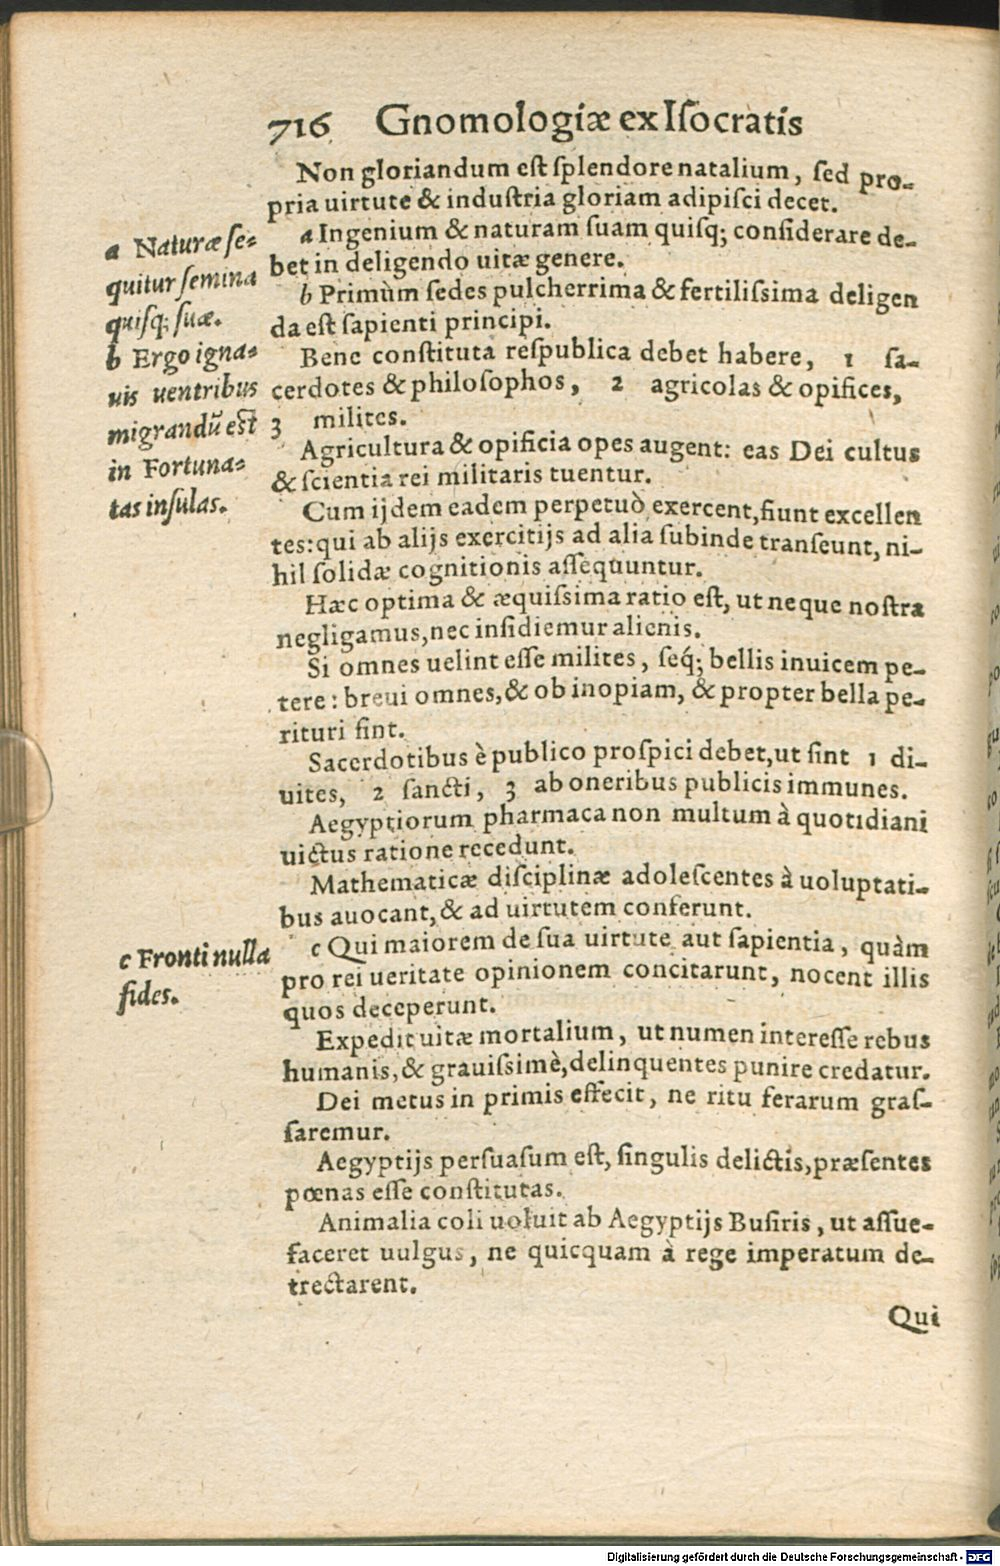 716 Gnomologiæ ex Iſocratis
Non gloriandum eſt ſplendore natalium, ſed pro-
pria uirtute & induſtria gloriam adipiſci decet.
a Naturæ ſe-
quitur ſemina
quiſq; ſuæ.
a Ingenium & naturam ſuam quiſq; conſiderare de-
bet in deligendo uitæ genere.
b Ergo igna-
uis uentribus
migrandũ eſt
in Fortuna-
tas inſulas.
b Primùm ſedes pulcherrima & fertiliſsima deligen
da eſt ſapienti principi.
Bene conſtituta reſpublica debet habere, 1 ſa-
cerdotes & philoſophos, 2 agricolas & opifices,
3 milites.
Agricultura & opificia opes augent: eas Dei cultus
& ſcientia rei militaris tuentur.
Cum ijdem eadem perpetuò exercent, fiunt excellen
tes: qui ab alijs exercitijs ad alia ſubinde tranſeunt, ni-
hil ſolidæ cognitionis aſſequuntur.
Hæc optima & æquiſsima ratio eſt, ut neque noſtra
negligamus, nec inſidiemur alienis.
Si omnes uelint eſſe milites, ſeq́; bellis inuicem pe-
tere: breui omnes, & ob inopiam, & propter bella pe-
rituri ſint.
Sacerdotibus è publico proſpici debet, ut ſint 1 di-
uites, 2 ſancti, 3 ab oneribus publicis immunes.
Aegyptiorum pharmaca non multum à quotidiani
uictus ratione recedunt.
Mathematicæ diſciplinæ adoleſcentes à uoluptati-
bus auocant, & ad uirtutem conferunt.
c Fronti nulla
fides.
c Qui maiorem de ſua uirtute aut ſapientia, quàm
pro rei ueritate opinionem concitarunt, nocent illis
quos deceperunt.
Expedit uitæ mortalium, ut numen intereſſe rebus
humanis, & grauiſsimè, delinquentes punire credatur.
Dei metus in primis effecit, ne ritu ferarum graſ-
ſaremur.
Aegyptijs perſuaſum eſt, ſingulis delictis, præſentes
pœnas eſſe conſtitutas.
Animalia coli uoluit ab Aegyptijs Buſiris, ut aſſue-
faceret uulgus, ne quicquam à rege imperatum de-
trectarent.
Qui
Digitalisierung gefördert durch die Deutsche Forschungsgemeinschaft - DFG